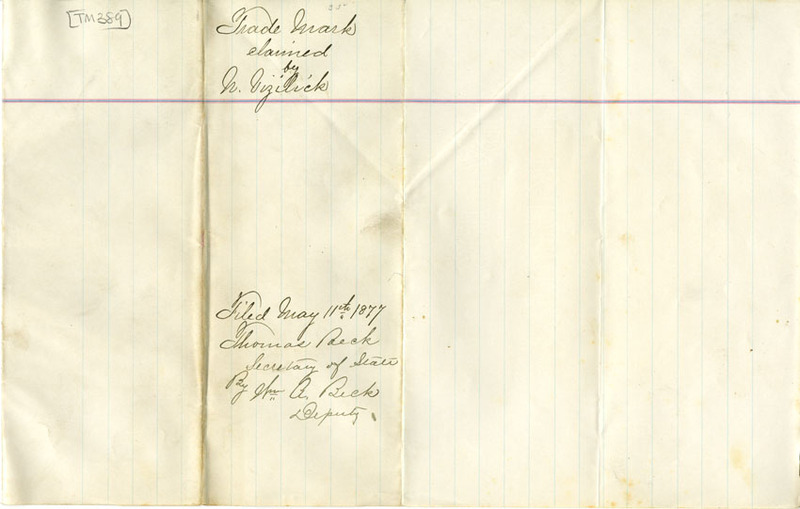 [TM389]
Trade Mark
claimed
by
N. Vizilich
Filed May 11th 1877
Thomas Beck
Secretary of State
By Wm A. Beck
Deputy